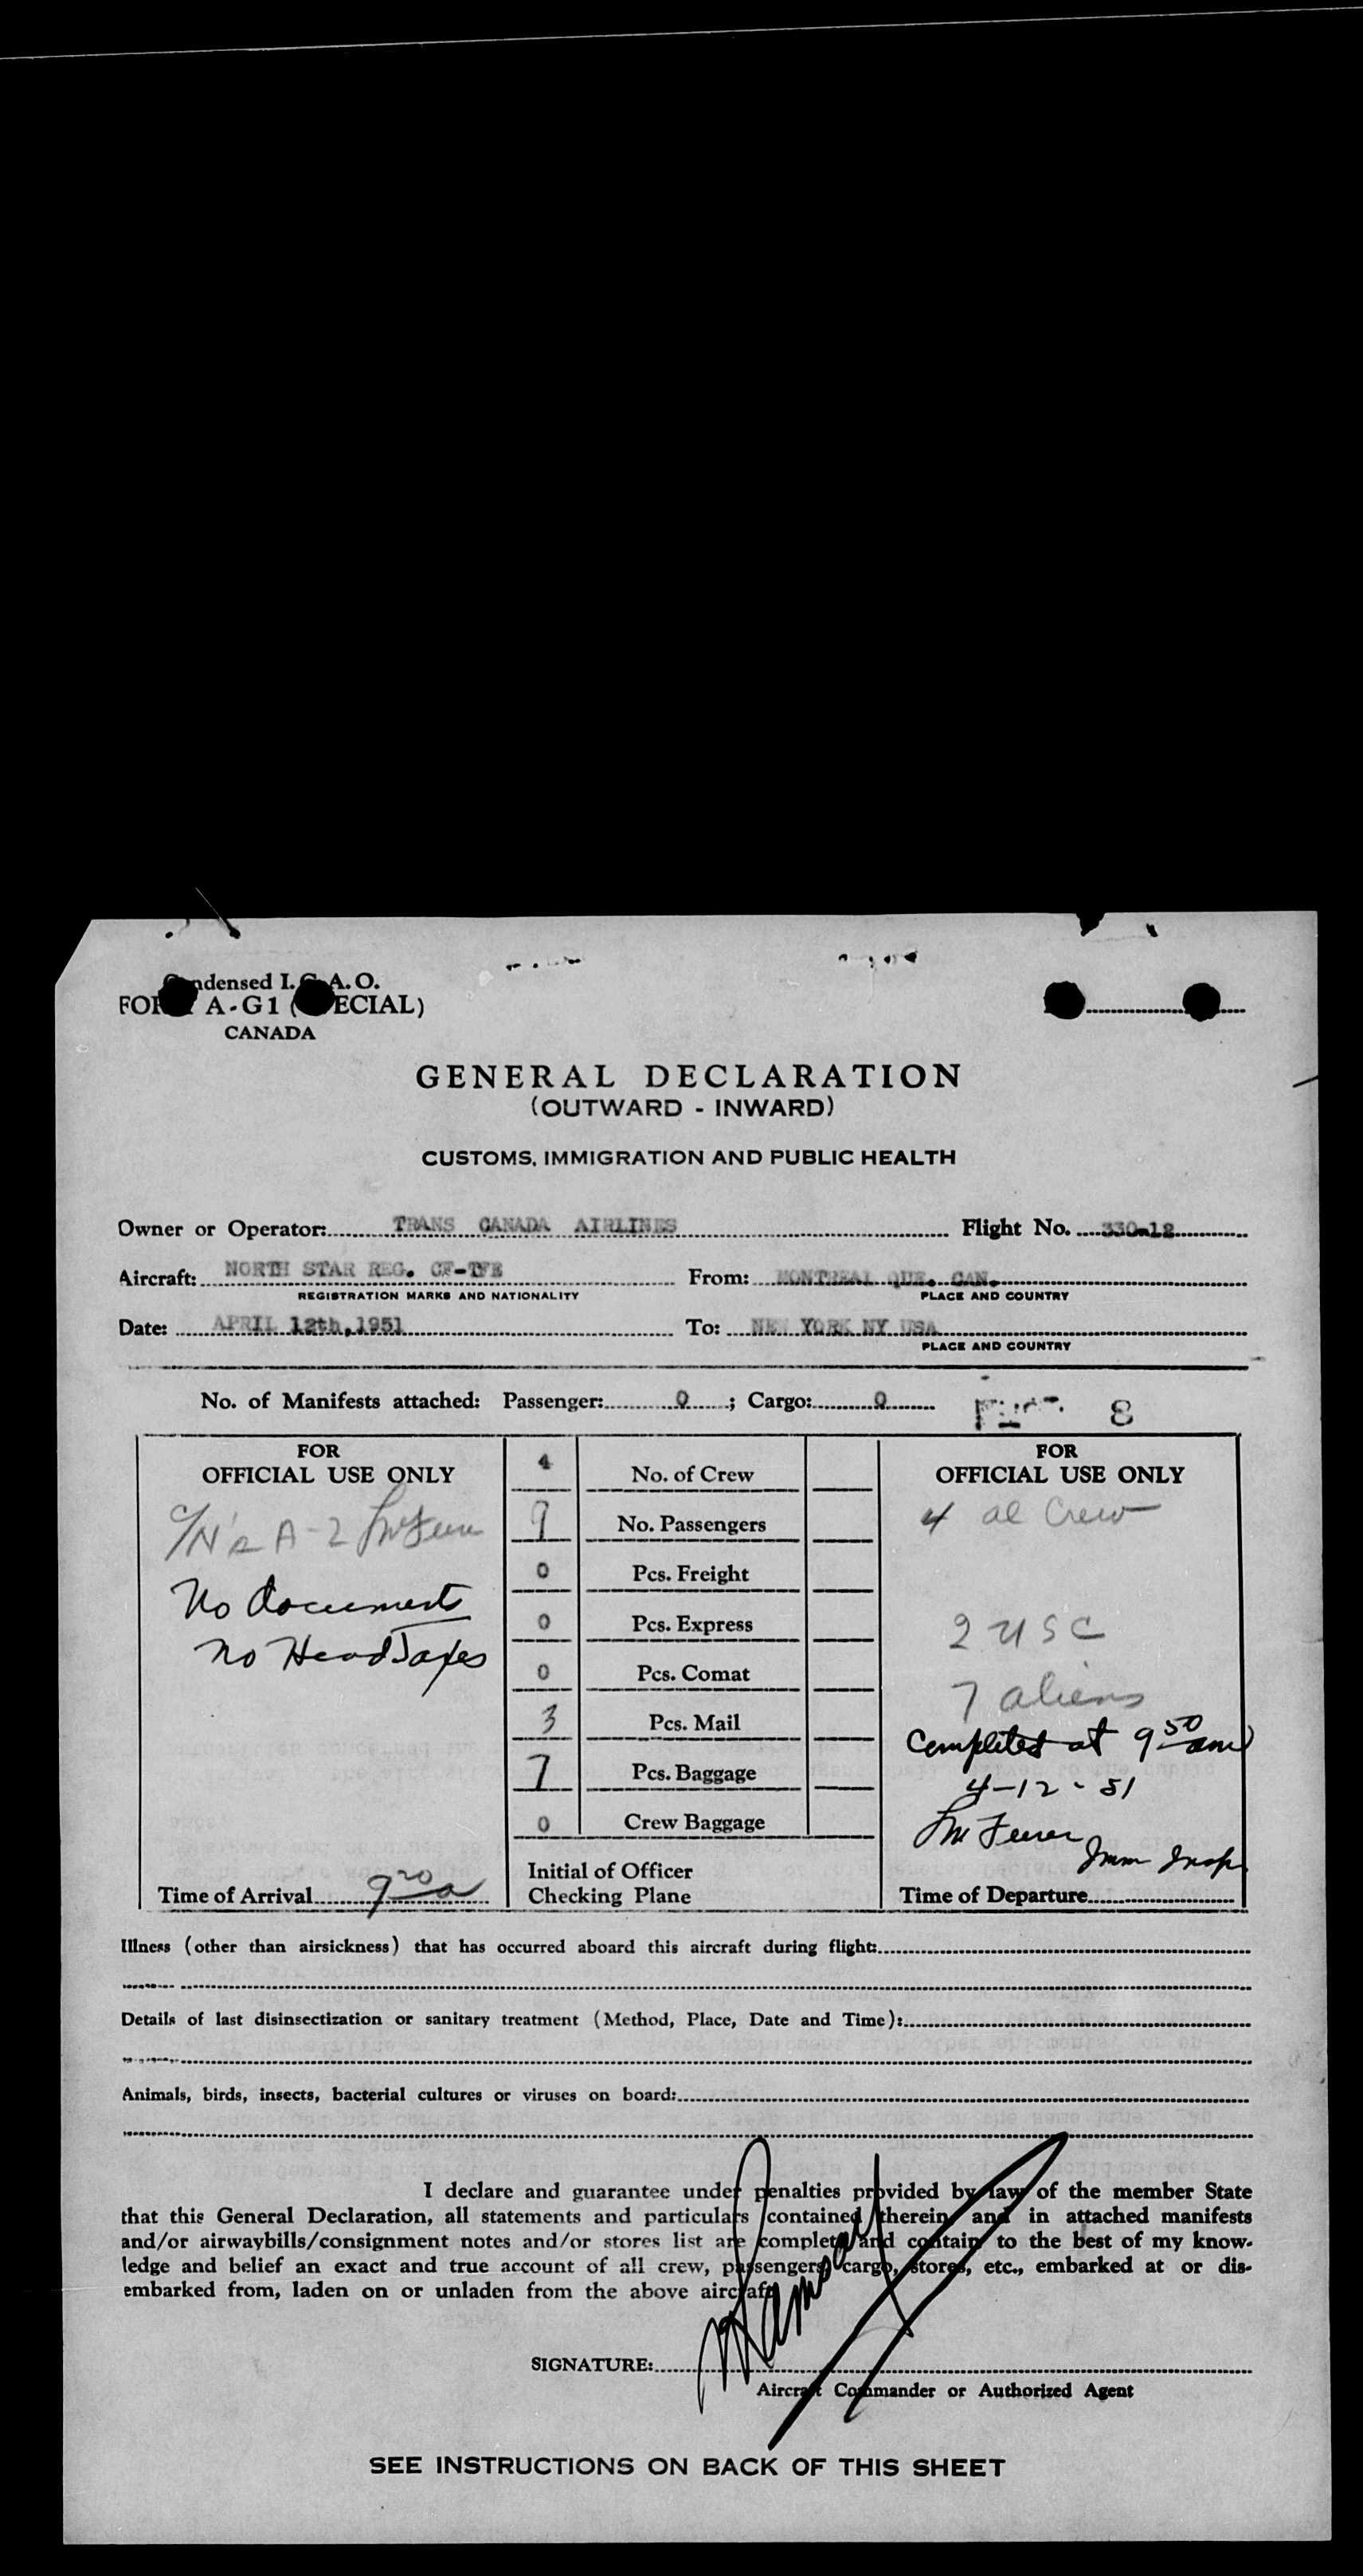 Condensed I.C.A.O.
FORM A-G1 (SPECIAL)
CANADA
GENERAL DECLARATION
(OUTWARD - INWARD)
CUSTOMS, IMMIGRATION AND PUBLIC HEALTH
Owner or Operator: TRANS CANADA AIRLINES Flight No. 330-12
Aircraft: NORTH STAR REG. CF-TFE From: MONTREAL QUE. CAN.
REGISTRATION MARKS AND NATIONALITY PLACE AND COUNTRY
Date: APRIL 12th,1951 To: NEW YORK NY USA
PLACE AND COUNTRY
No. of Manifests attached: Passenger: 0 ; Cargo: 0
8
FOR
OFFICIAL USE ONLY
A-2
No documents
No Head Taxes
Time of Arrival 9 20 a
4 No. of Crew
9 No. Passengers
0 Pcs. Freight
0 Pcs. Express
0 Pcs. Comat
3 Pcs. Mail
7 Pcs. Baggage
0 Crew Baggage
Initial of Officer
Checking Plane
FOR
OFFICIAL USE ONLY
4 al Crew
2 USC
7 aliens
Completed at 9 50 am
4-12-51
Imm Insp
Time of Departure
Illness (other than airsickness) that has occurred aboard this aircraft during flight:
Details of last disinsectization or sanitary treatment (Method, Place, Date and Time):
Animals, birds, insects, bacterial cultures or viruses on board:
I declare and guarantee under penalties provided by law of the member State
that this General Declaration, all statements and particulars contained therein, and in attached manifests
and/or airwaybills/consignment notes and/or stores list are complete and contain to the best of my know-
ledge and belief an exact and true account of all crew, passengers, cargo, stores, etc., embarked at or dis-
embarked from, laden on or unladen from the above aircraft.
SIGNATURE:
Aircraft Commander or Authorized Agent
SEE INSTRUCTIONS ON BACK OF THIS SHEET